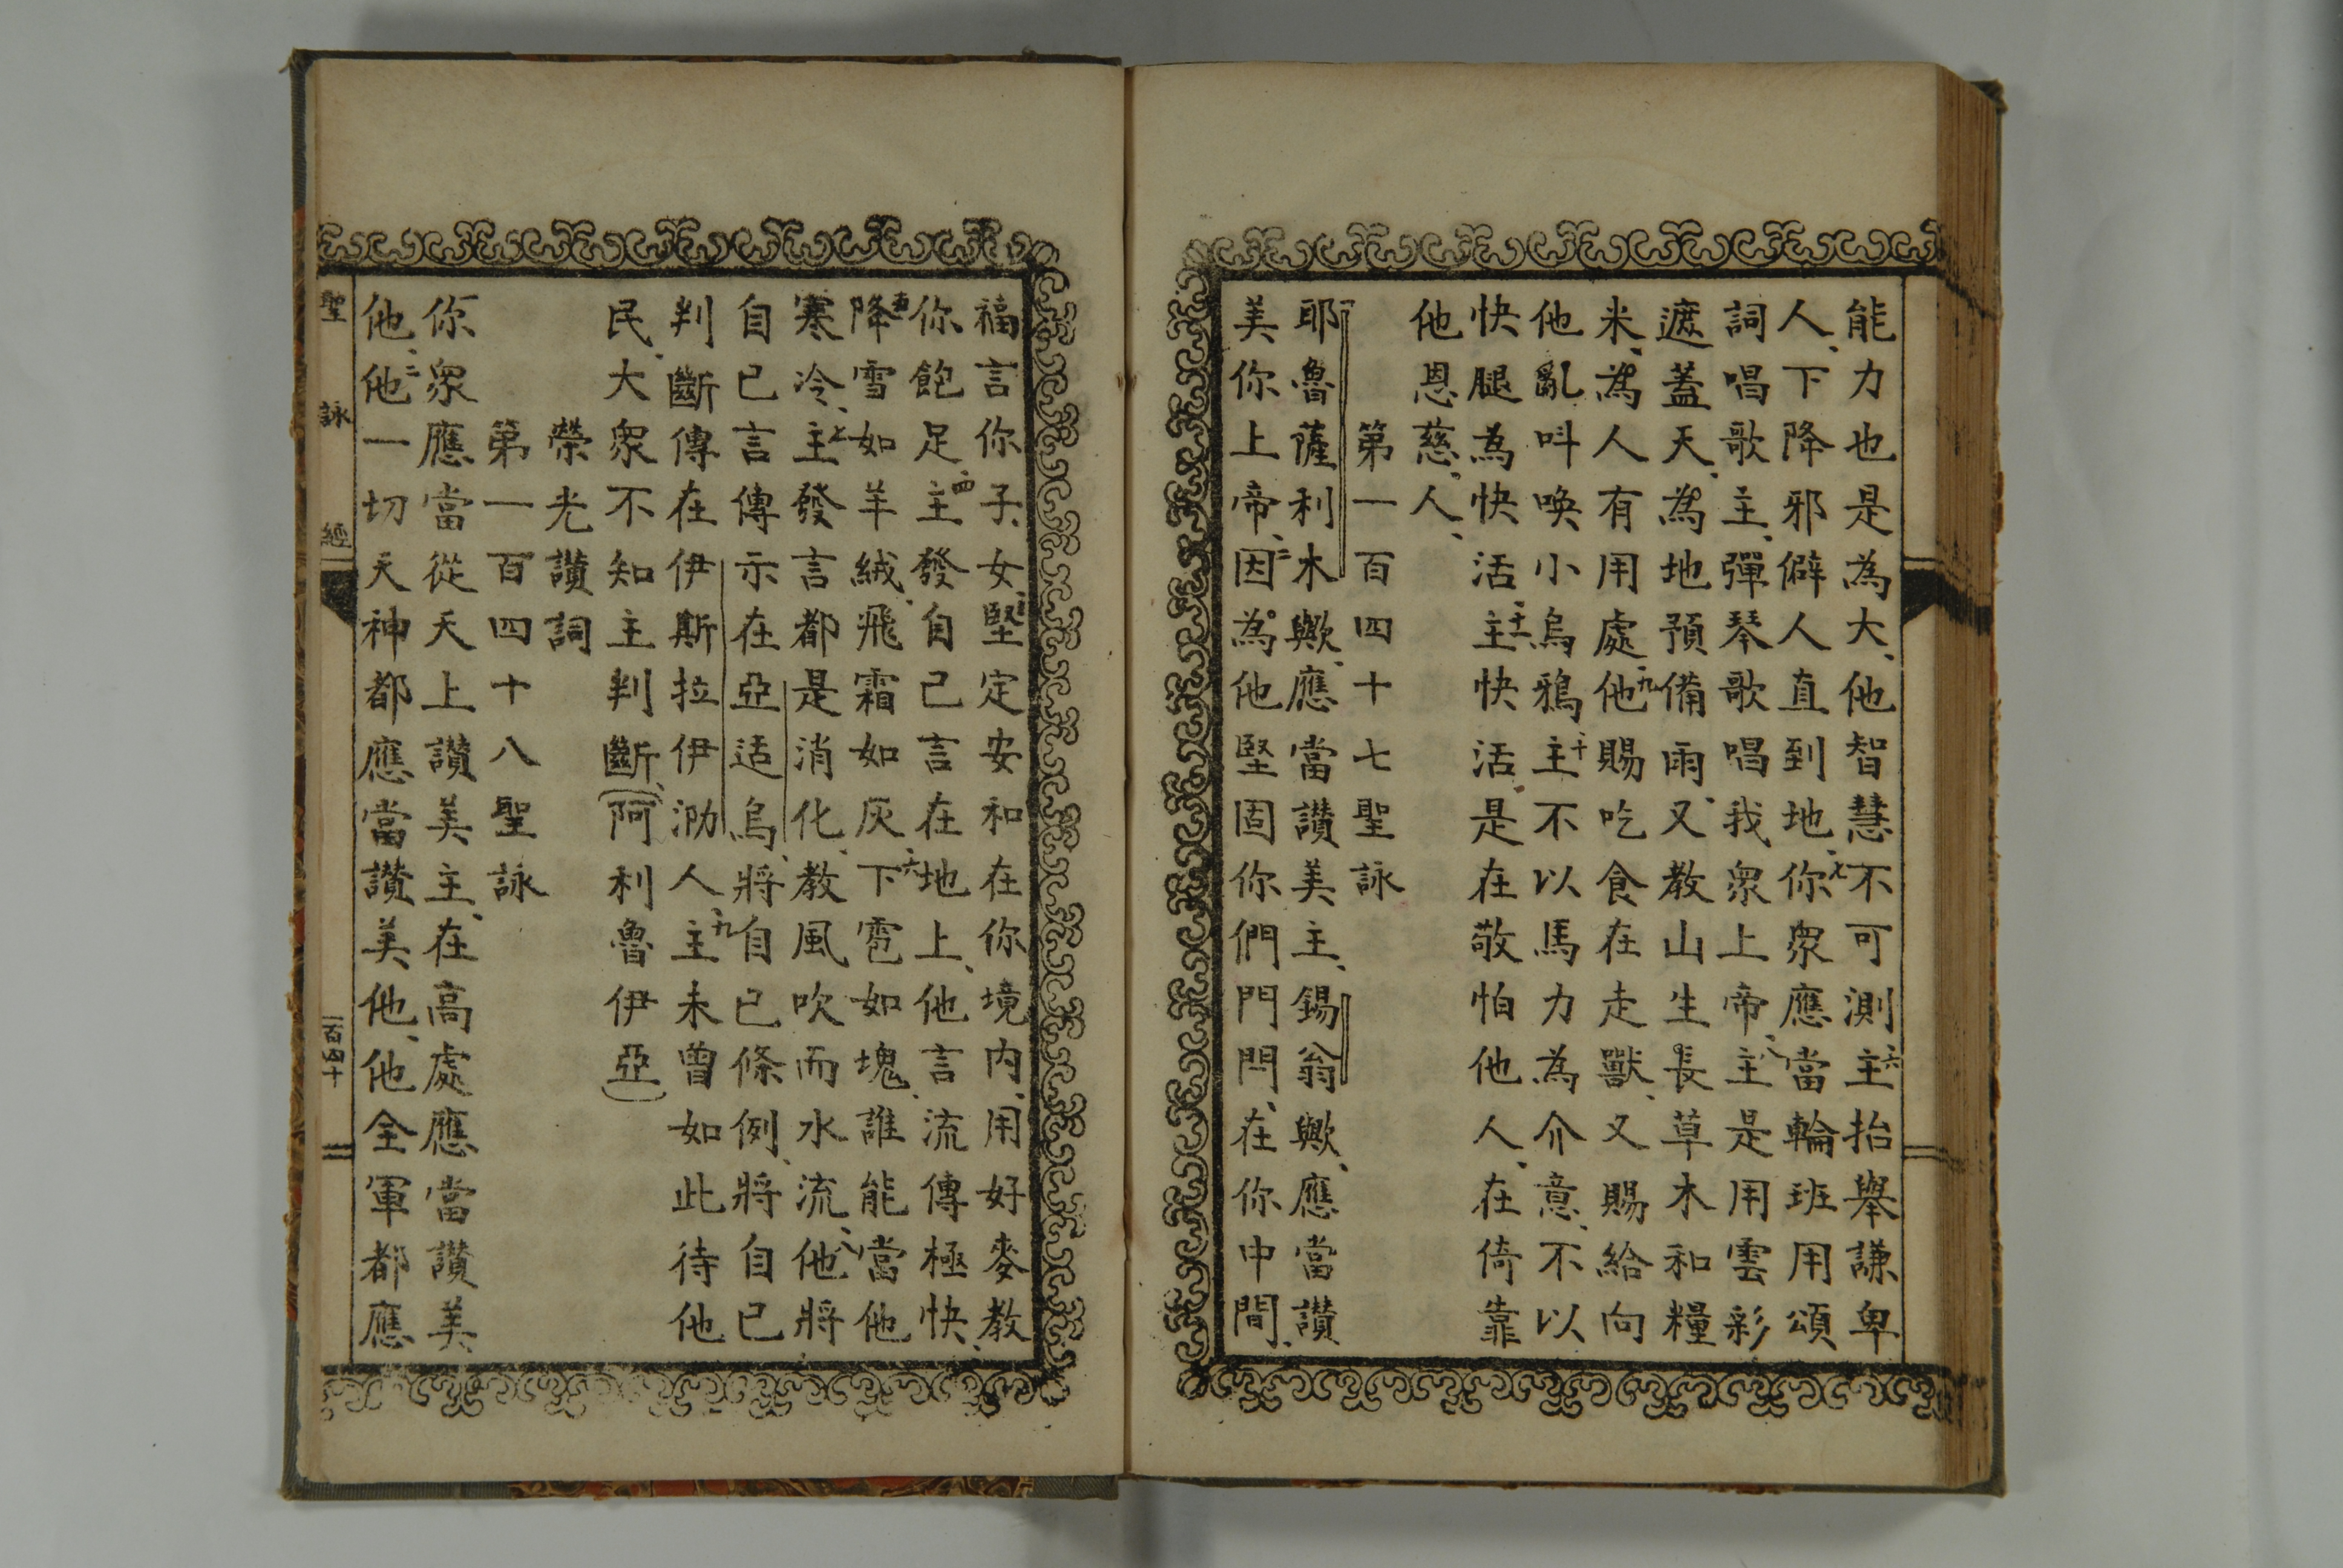 能力也是為大、他智慧不可測、六主抬舉謙卑
人、下降邪僻人直到地、七你眾應當輪班用頌
詞唱歌主、彈琴歌唱我眾上帝、八主是用雲彩
遮蓋天、為地預備雨、又教山生長草木和糧
米、為人有用處、九他賜吃食在走獸、又賜給向
他亂呌喚小烏鴉、十主不以馬力為介意、不以
快腿為快活、十一主快活、是在敬怕他人、在倚靠
他恩慈人、
第一百四十七聖詠
耶魯薩利木歟、應當讚美主、錫翁歟、應當讚
美你上帝、二因為他堅固你們門閂、在你中間、
福言你子女、三堅定安和在你境内、用好麥教
你飽足、四主發自己言在地上、他言流傳極快、
五降雪如羊絨、飛霜如灰、六下雹如塊、誰能當他
寒冷、七主發言都是消化、教風吹而水流、八他將
自己言傳示在亞适烏、將自己條例、將自己
判斷傳在伊斯拉伊泐人、九主未曾如此待他
民、大眾不知主判斷、（阿利魯伊亞）
榮光讚詞
第一百四十八聖詠
你眾應當從天上讚美主、在高處應當讚美
他、二他一切天神都應當讚美他、他全軍都應
聖詠經
一百四十